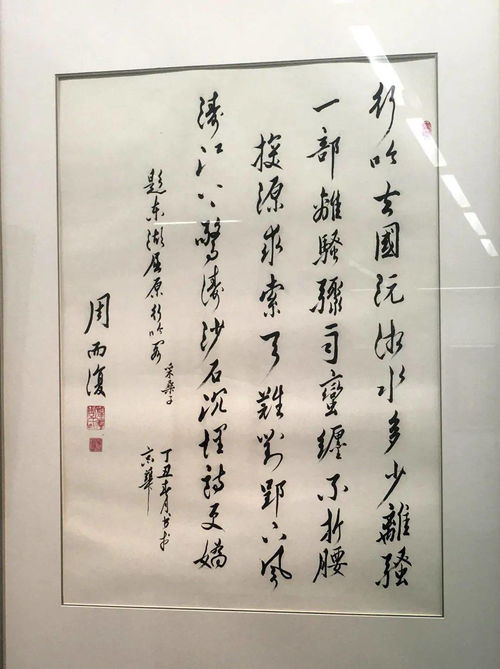 行吟去國沅湘水多少離騷
一部離騷驟蠻纏不折腰
探源求索天難對郢下風
濤江上驚濤沙石沉埋詩更嬌
題東湖屈原行吟閣
采桑子
丁丑春月書於
京華
周而復